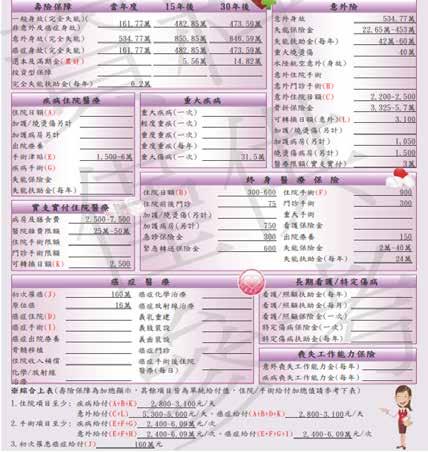 壽險保障 當年度 15年後 30年後
一般身故(完全失能)(非意外及癌症身故) 161.77萬 482.85萬 473.59萬
意外身故(完全失能) 534.77萬 855.85萬 846.59萬
癌症身故(完全失能) 161.77萬 482.85萬 473.59萬
還本及滿期金(累計) 5.56萬 14.82萬
投資型保障
完全失能扶助金(每年) 6.2萬
意外險
意外身故 534.77萬
失能保險金 22.65萬-453萬
失能扶助金(每年) 42萬-60萬
重大燒燙傷 40萬
水陸航空意外(身故)
意外住院手術
意外門診手術(B)
意外住院日額(C) 2,200-2,500
骨折保險金 3,325-5.7萬
可轉換日額(意外)(L) 3,100
加護/燒燙傷(另計)
加護病房(另計) 1,050
燒燙傷病房(另計) 1,500
醫療限額(實支實付) 3萬
疾病住院醫療
住院日額(A)
加護/燒燙傷另計
加護病房另計
出院療養
手術津貼(E) 1,500-6萬
疾病手術(G)
失能保險金
失能扶助金(每年)
重大疾病
重大疾病(一次)
輕度重疾(一次)
重度重疾(一次)
重度重疾(每年)
重大傷病(一次) 31.5萬
實支實付住院醫療
病房及膳食費 2,500-7,500
醫院雜費限額 25萬-50萬
住院手術限額
門診手術限額
可轉換日額(K) 2,500
終身醫療保險
住院日額(B) 300-600
住院前後門診 75
加護/燒燙傷(另計)
加護病房(另計) 750
急診保險金 300
緊急轉送保險金 600
住院手術(F) 900
門診手術 300
重大手術
看護保險金
出院療養 150
失能保險金 2萬-40萬
失能扶助金(每年) 24萬
癌症醫療
初次罹癌(J) 160萬
原位癌 16萬
癌症住院(D)
癌症手術(I)
癌症出院療養
骨髓移植
住院收入補償
化學/放射線治療
癌症化學治療
癌症放射線治療
義乳重建
義肢裝設
義齒裝設
癌症門診
癌症手術後住院醫療(每日)
長期看護/特定傷病
看護/照顧扶助金(每年)
看護/照顧扶助金(每月)
看護/照顧保險金(一次)
特定傷病保險金(一次)
特定傷病扶助金(每年)
喪失工作能力保險
意外喪失工作能力金(每年)
疾病喪失工作能力金(每年)
※綜合上表(壽險保障為加總顯示,其餘項目皆為單純給付值,住院/手術給付加總值請參考下表)
1.住院項目至少:疾病給付(A+B+K) 2,800-3,100元/天
意外給付(C+L) 5,300-5,600元/天,癌症給付(A+B+D+K) 2,800-3,100元/天
2.手術項目至少:疾病給付(E+F+G) 2,400-6.09萬元/次
意外給付(E+F+H) 2,400-6.09萬元/次,癌症給付(E+F+G+I) 2,400-6.09萬元/次
3.初次罹患癌症給付(J) 160萬元